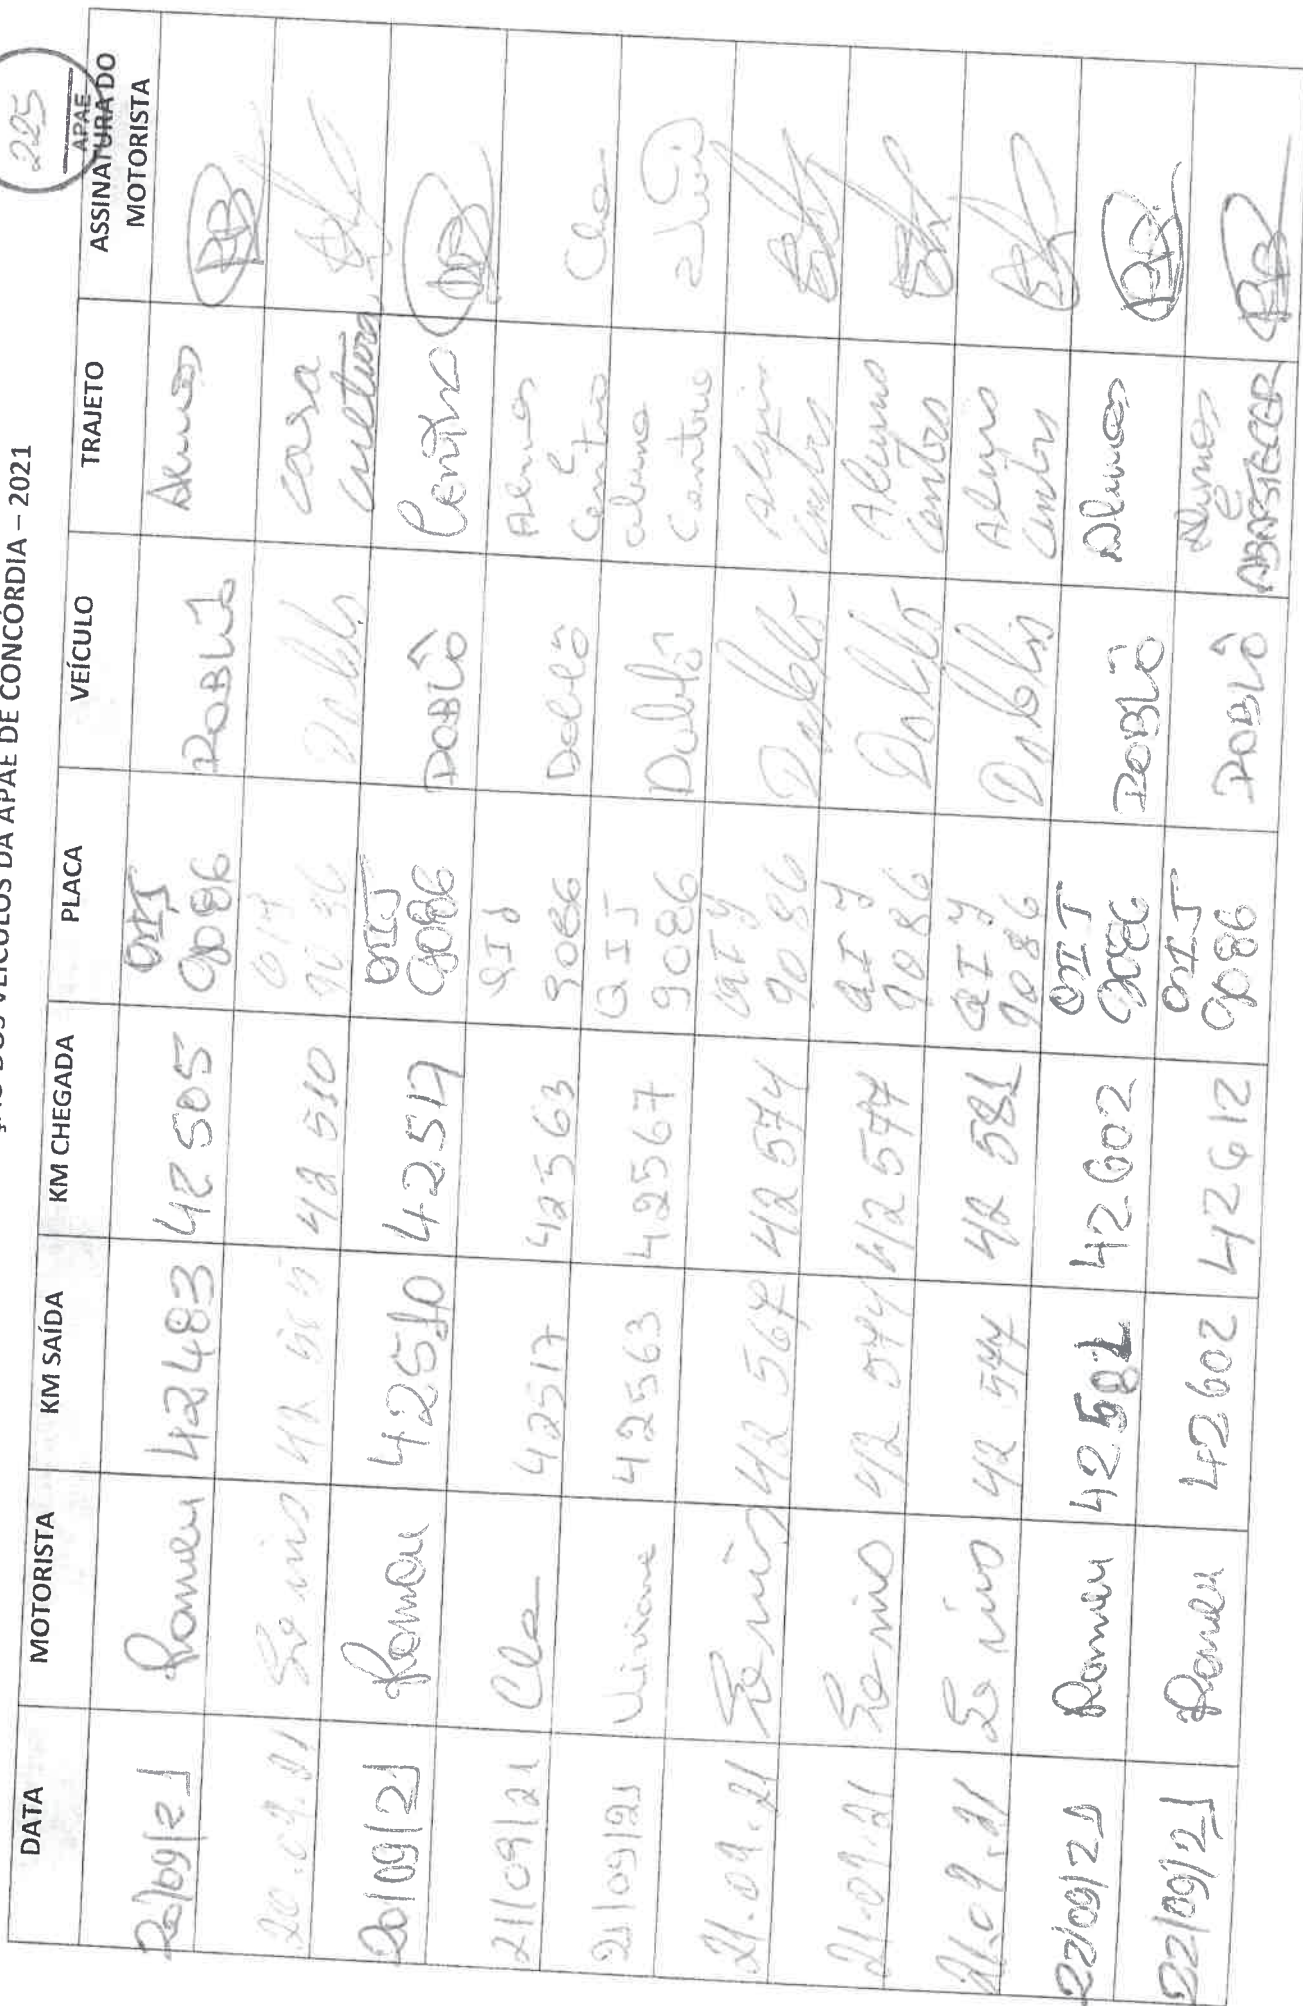 225
APAE
ÇÃO DOS VEÍCULOS DA APAE DE CONCÓRDIA – 2021
DATA MOTORISTA KM SAÍDA KM CHEGADA PLACA VEÍCULO TRAJETO ASSINATURA DO MOTORISTA
20/09/21 Romeu 42483 42505 QIJ 9086 DOBLÔ Alunos
20.09.21 42 510 Casa Cultura
20/09/21 Romeu 42510 42517 QIJ 9086 DOBLÔ Centro
21/09/21 Cla 42517 42563 QIJ 9086 Doblô Alunos e Centro Cla
21/09/21 Viviane 42563 42567 QIJ 9086 Doblô aluno Centro
21.09.21 42 567 42 574 QIJ 9086 Doblô Centro
21.09.21 42 574 42 577 QIJ 9086 Doblô Aluno Centro
21.09.21 42 577 42 581 QIJ 9086 Doblô Aluno Centro
22/09/21 Romeu 42581 42602 QIJ 9086 DOBLÔ Alunos
22/09/21 Romeu 42602 42612 QIJ 9086 DOBLÔ Alunos e ABASTECER